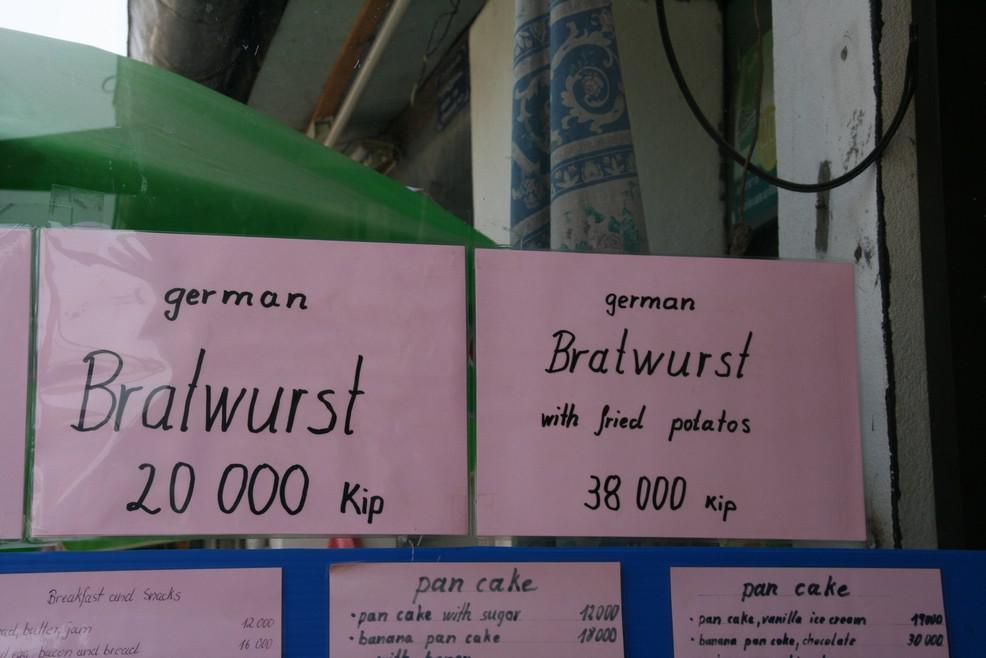 german
Bratwurst
20 000 Kip
german
Bratwurst
with fried potatos
38 000 Kip
Breakfast and Snacks
butter, jam 12 000
bacon and bread 16 000
pan cake
• pan cake with sugar 12000
• banana pan cake 18000
pan cake
• pan cake, vanilla ice cream 19000
• banana pan cake, chocolate 30 000